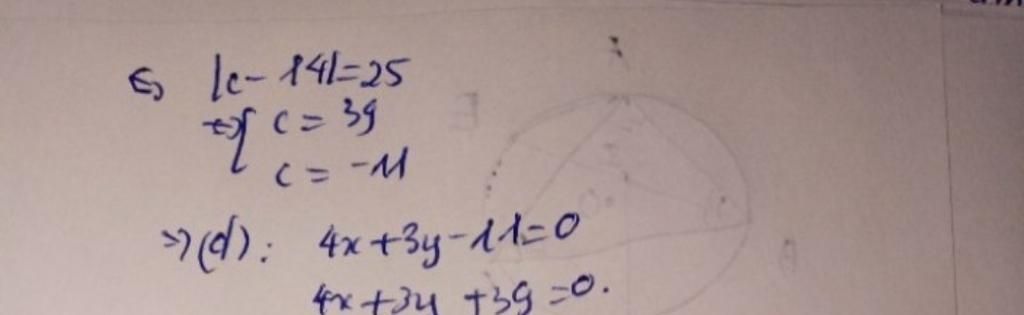 ⇔ |c - 14| = 25
⇔ { c = 39
c = -11
⇒ (d): 4x + 3y - 11 = 0
4x + 3y + 39 = 0.